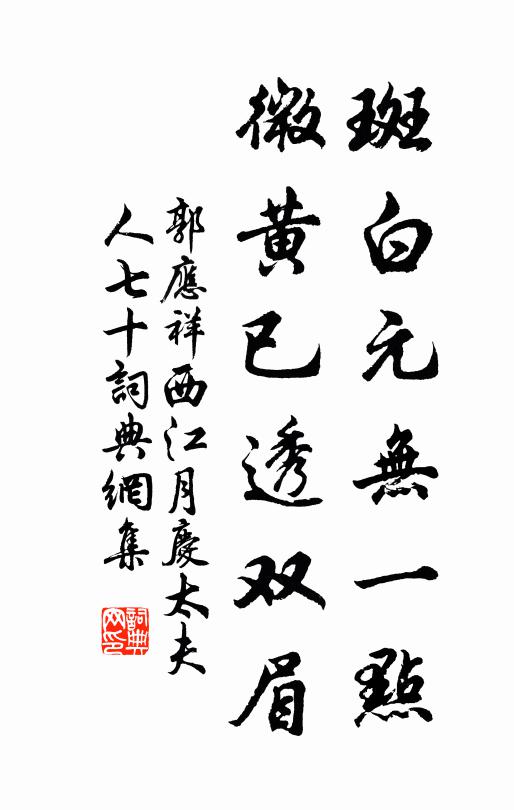 斑白元無一點
微黄已透双眉
郭應祥西江月慶太夫
人七十詞典網集
詞典
网印